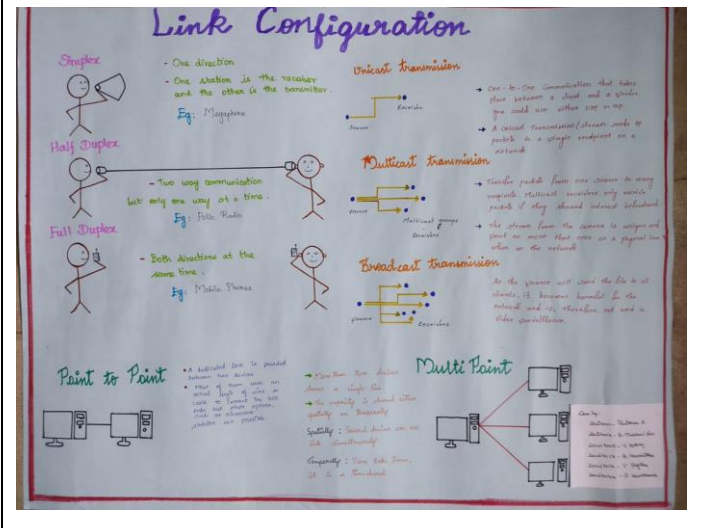 Link Configuration
Simplex
- One direction
- One station is the receiver
and the other is the transmitter.
Eg: Megaphone
Half Duplex
- Two way communication
but only one way at a time.
Eg: Polic Radio
Full Duplex
- Both directions at the
same time.
Eg: Mobile Phones
Unicast transmission
Source
Receiver
→ One-to-One Communication that takes
place between a client and a
you could use either
→ A unicast transmission/stream sends
packets to a single recipient on a
network
Multicast transmission
source
Multicast groups
Receivers
→ Transfer packets from one source to many
recipients. Multicast receivers only receive
packets if they showed interest beforehand
→ The stream from the camera is unique and
sent no more than once on a physical
when on the network
Broadcast transmission
source
Receivers
As the source will send the file to all
clients, it becomes harmful for the
network and is, therefore, not used in
video surveillance.
Point to Point
• A dedicated link is provided
between two devices
• Most of them use an
actual length of wire or
cable to connect the two
ends but other options,
such as microwave
satellite are possible.
→ More than two devices
shares a single link.
→ The capacity is shared either
spatially or temporally
Spatially : Several devices can use
link simultaneously
Temporally : Takes Turns,
It is a timeshared
Multi Point
Done by: